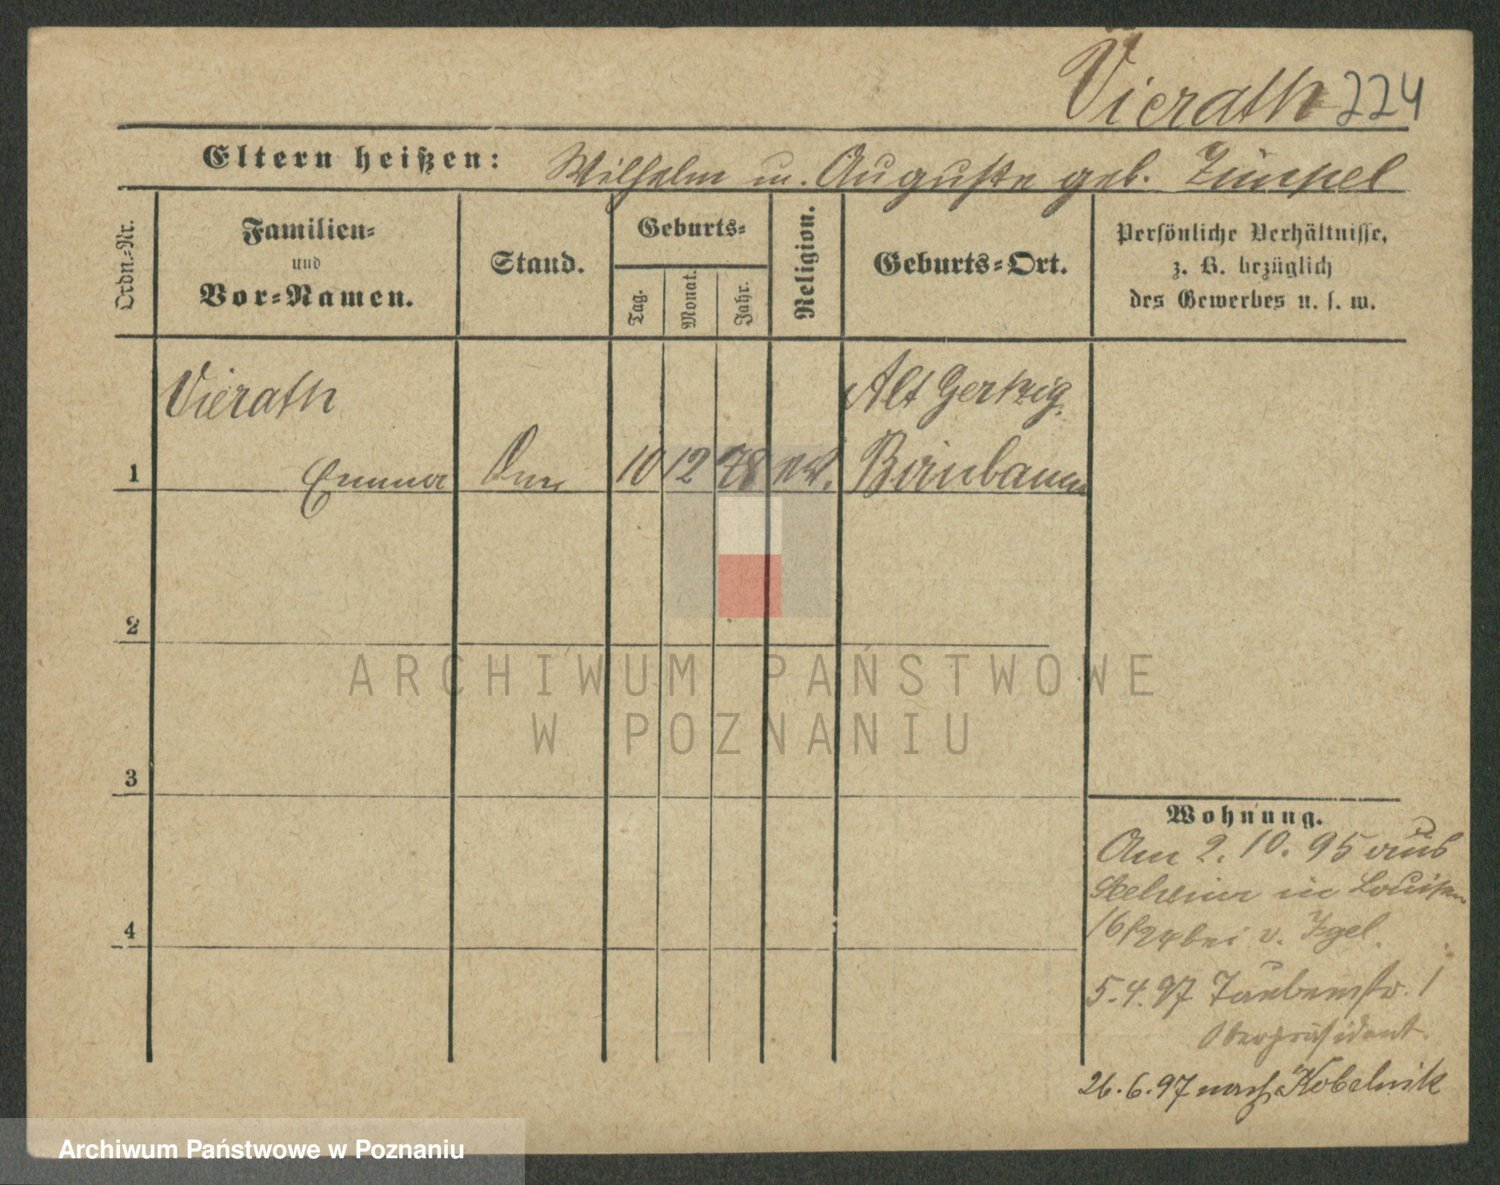 Vierath 224
Eltern heißen: Wilhelm u. Auguste geb. Zimpel
Ordn.-Nr.
Familien-
und
Vor-Namen.
Stand.
Geburts-
Tag.
Monat.
Jahr.
Religion.
Geburts-Ort.
Persönliche Verhältnisse,
z. B. bezüglich
des Gewerbes u. s. w.
Vierath
Alt Gertzig
1 Emma 10 12 78 ev. Birnbaum
2
ARCHIWUM PAŃSTWOWE
W POZNANIU
3
4
Wohnung.
Am 2. 10. 95 aus
in Louisen
16/24 bei v.
5.4.97 Taubenstr. 1
Oberpräsident.
26.6.97 nach Kobelnik
Archiwum Państwowe w Poznaniu